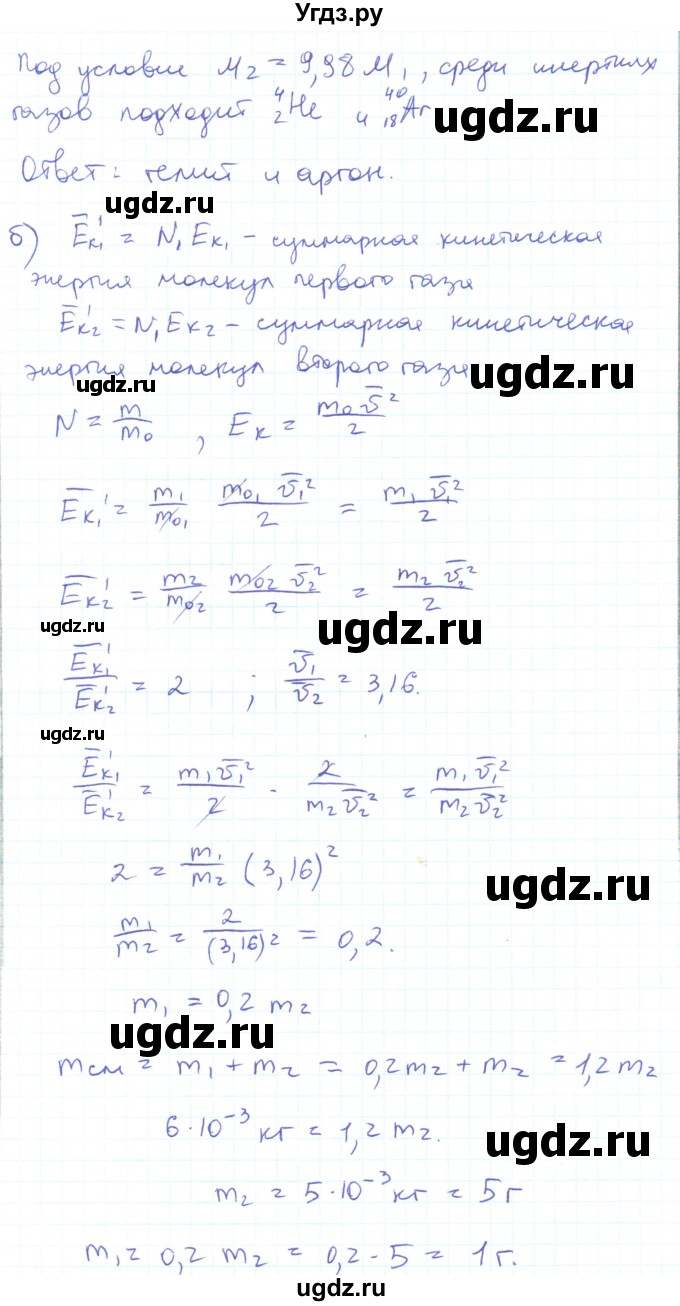 Угдз.ру
Под условие M₂ = 9,98 M₁, среди инертных
газов подходит ⁴₂He и ⁴⁰₁₈Ar
ugdz.ru
Ответ: гелий и аргон.
ugdz.ru
б) E̅ₖ₁' = N₁ Eₖ₁ – суммарная кинетическая
энергия молекул первого газа
E̅ₖ₂' = N₁ Eₖ₂ – суммарная кинетическая
энергия молекул второго газа
ugdz.ru
ugdz.ru
N = m/m₀ , Eₖ = m₀ v̅²/2
E̅ₖ₁' = m₁/m₀₁ · m₀₁ v̅₁²/2 = m₁ v̅₁²/2
E̅ₖ₂' = m₂/m₀₂ · m₀₂ v̅₂²/2 = m₂ v̅₂²/2
ugdz.ru
ugdz.ru
E̅ₖ₁'/E̅ₖ₂' = 2 ; v̅₁/v̅₂ = 3,16.
ugdz.ru
E̅ₖ₁'/E̅ₖ₂' = m₁ v̅₁²/2 · 2/m₂ v̅₂² = m₁ v̅₁²/m₂ v̅₂²
2 = m₁/m₂ (3,16)²
ugdz.ru
m₁/m₂ = 2/(3,16)² = 0,2.
m₁ = 0,2 m₂
ugdz.ru
mсм = m₁ + m₂ = 0,2 m₂ + m₂ = 1,2 m₂
6·10⁻³ кг = 1,2 m₂.
ugdz.ru
m₂ = 5·10⁻³ кг = 5 г
m₁ = 0,2 m₂ = 0,2 · 5 = 1 г.
ugdz.ru